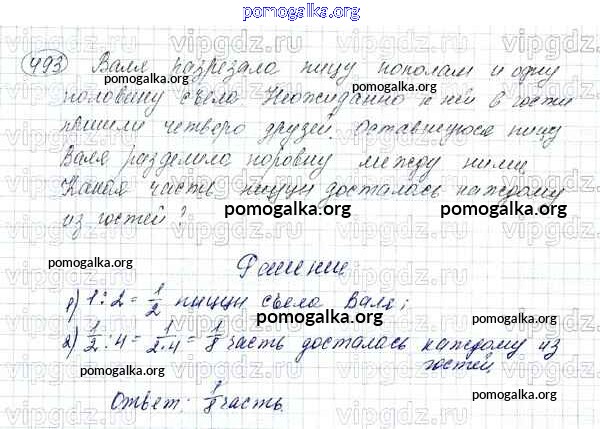 pomogalka.org
493 Валя разрезала пиццу пополам и одну
pomogalka.org pomogalka.org
половину съела Неожиданно к ней в гости
пришли четверо друзей. Оставшуюся пиццу
Валя разделила поровну между ними
Какая часть пиццы досталась каждому
из гостей?
pomogalka.org pomogalka.org
pomogalka.org
Решение
1) 1:2 = 1/2 пиццы съела Валя;
pomogalka.org
2) 1/2 : 4 = 1/2·4 = 1/8 часть досталась каждому из
гостей
pomogalka.org
Ответ: 1/8 часть.